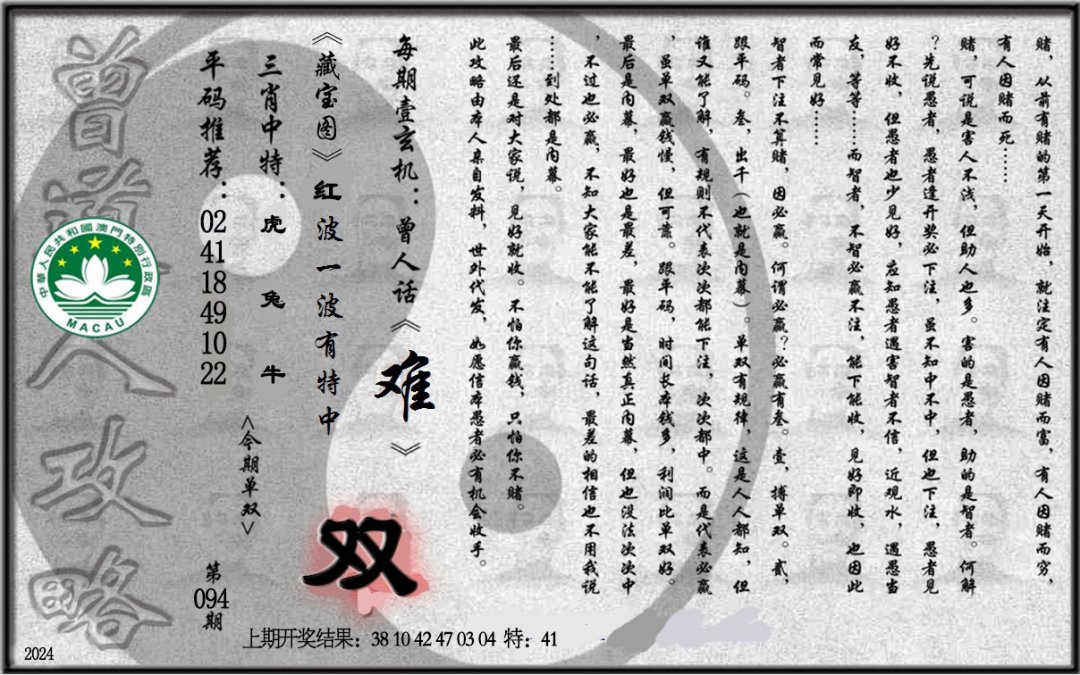 赌，从前有赌的第一天开始，就注定有人因赌而富，有人因赌而穷，
有人因赌而死……
赌，可说是害人不浅，但助人也多。害的是愚者，助的是智者。何解
？先说愚者，愚者逢开奖必下注，虽不知中不中，但也下注，愚者见
好不收，但愚者也少见好，应知愚者遇害智者不信，近观水，遇愚当
友，等等……而智者，不智必赢不注，能下能收，见好即收，也因此
而常见好……
智者下注不算赌，因必赢。何谓必赢？必赢有叁。壹，搏单双。贰，
跟平码。叁，出千（也就是内幕）。单双有规律，这是人人都知，但
谁又能了解，有规则不代表次次都能下注，次次都中。而是代表必赢
，虽单双赢钱慢，但可靠。跟平码，时间长本钱多，利润比单双好。
最后是内幕，最好也是最差，最好是当然真正内幕，但也没法次次中
，不过也必赢，不知大家能不能了解这句话，最差的相信也不用我说
……到处都是内幕。
最后还是对大家说，见好就收。不怕你赢钱，只怕你不赌。
此攻略由本人亲自发料，世外代发，如愿信本愚者必有机会收手。
每期壹玄机：曾人话《难》
《藏宝图》红波一波有特中
双
三肖中特：虎 兔 牛
<今期单双>
平码推荐：02 41 18 49 10 22
第094期
曾道人攻略
中華人民共和國澳門特別行政區
MACAU
上期开奖结果：38 10 42 47 03 04 特：41
2024